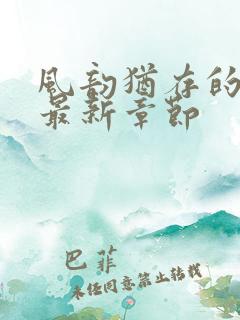 风韵犹存的
最新章节
巴菲
未经同意禁止转载